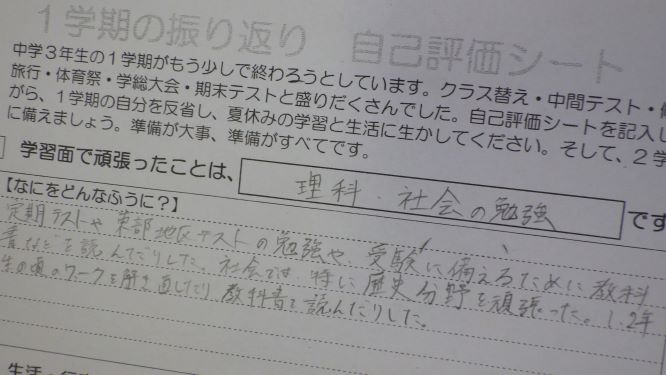 1学期の振り返り　自己評価シート
中学3年生の1学期がもう少しで終わろうとしています。クラス替え・中間テスト・修
旅行・体育祭・学総大会・期末テストと盛りだくさんでした。自己評価シートを記入し
がら、1学期の自分を反省し、夏休みの学習と生活に生かしてください。そして、2学
に備えましょう。準備が大事、準備がすべてです。
学習面で頑張ったことは、 理科・社会の勉強 です
【なにをどんなふうに？】
定期テストや東部地区テストの勉強や、受験に備えるために教科
書などを読んだりした。社会では、特に歴史分野を頑張った。1、2年
生の頃のワークを解き直したり教科書を読んだりした。
生活・行